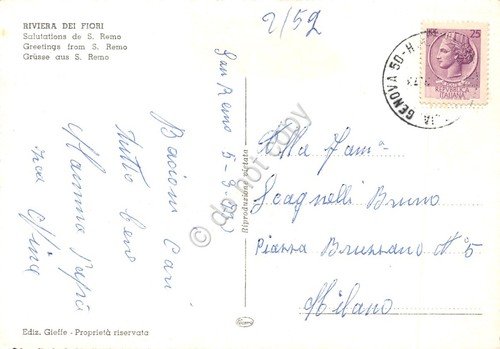 RIVIERA DEI FIORI
Salutations de S. Remo
Greetings from S. Remo
Grüsse aus S. Remo
2/52
San Remo 5-8
Bacioni Cari
tutto bene
Mamma Papà
Riproduzione vietata
Alla Fam.a
Scagnelli Bruno
Piazza Bruzzano N° 5
Milano
25
REPUBBLICA
ITALIANA
GENOVA 50-H
do not copy
Ediz. Gieffe - Proprietà riservata